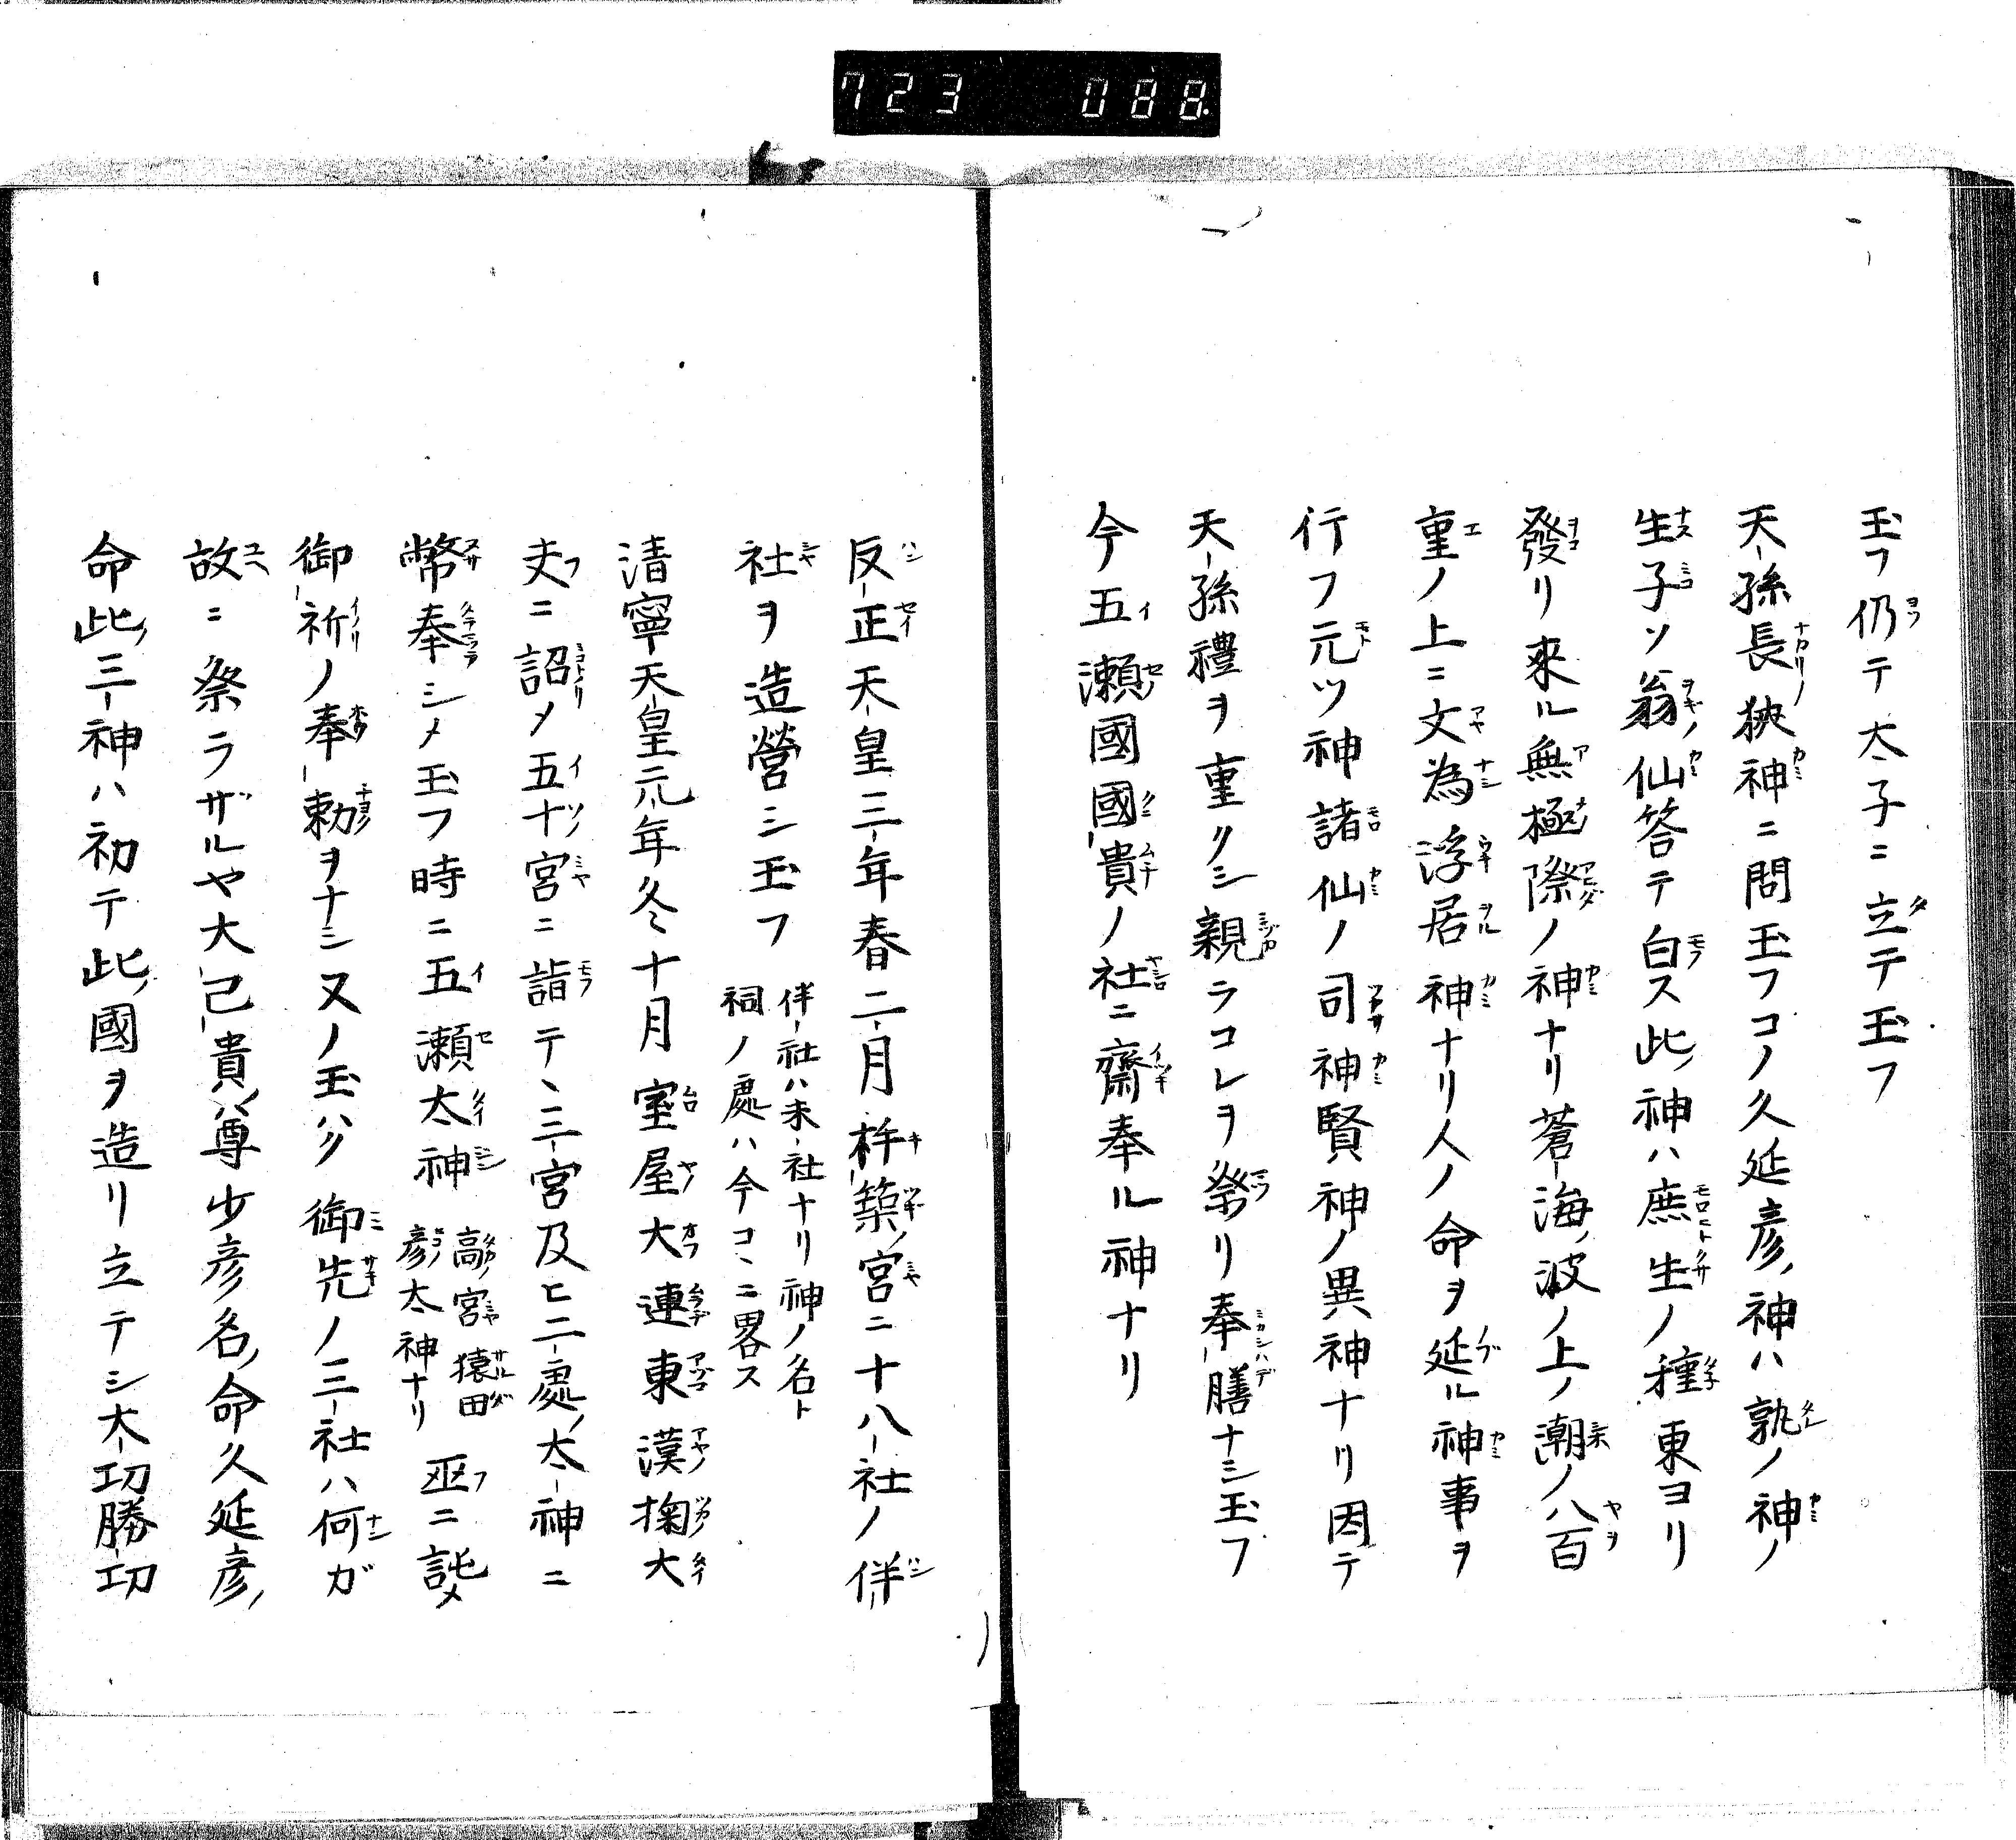 723 088
玉フ仍テ太子ニ立テ玉フ
天孫長狹神ニ問玉フコノ久延彦神ハ孰ノ神ノ
生子ソ翁仙答テ白ス此神ハ庶生ノ種東ヨリ
發リ來ル無極際ノ神ナリ蒼海ノ波ノ上ノ潮ノ八百
重ノ上ニ文為浮居神ナリ人ノ命ヲ延ル神事ヲ
行フ元ツ神諸仙ノ司神賢神ノ異神ナリ因テ
天孫禮ヲ重クシ親ラコレヲ祭リ奉膳ナシ玉フ
今五瀬國國貴ノ社ニ齋奉ル神ナリ
反正天皇三年春二月杵築ノ宮ニ十八社ノ伴
社ヲ造營シ玉フ 伴社ハ末社ナリ神ノ名ト
祠ノ處ハ今コヽニ畧ス
清寧天皇元年冬十月室屋大連東漢掬大
夫ニ詔メ五十宮ニ詣テ、三宮及ヒ二處ノ太神ニ
幣奉シメ玉フ時ニ五瀬太神 高ノ宮猿田
彦太神ナリ 巫ニ詫メ
御祈ノ奉勅ヲナシ又ノ玉ハク御先ノ三社ハ何ガ
故ニ祭ラザルヤ大己貴ノ尊少彦名ノ命久延彦ノ
命此三神ハ初テ此國ヲ造リ立テシ大功勝功